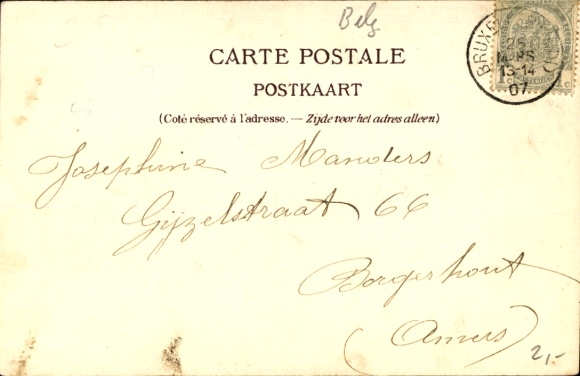 Belg
CARTE POSTALE
POSTKAART
(Coté réservé à l'adresse. — Zijde voor het adres alleen)
BRUX
26
MARS
13-14
07
1 c
Josephine Manders
Gijzelstraat 66
Borgerhout
(Anvers)
2,-